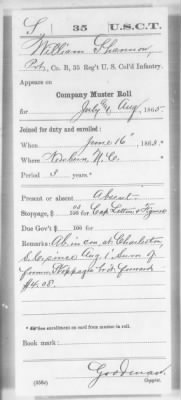 S | 35 | U.S.C.T.
William Shannon
Pvt, Co. B, 35 Reg't U. S. Col'd Infantry.
Appears on
Company Muster Roll
for July & Aug, 1865.
Joined for duty and enrolled:
When June 16, 1863.
Where Newbern N.C.
Period 3 years.*
Present or absent Absent
Stoppage, $ 03/100 for Cap Letters & Figures
Due Gov't $ /100 for
Remarks: Absent in con. at Charleston
S.C. since Aug. 1
former Stoppages
$4.08.
* See enrollment on card from muster in roll.
Book mark:
Goodman
(358c) Copyist.